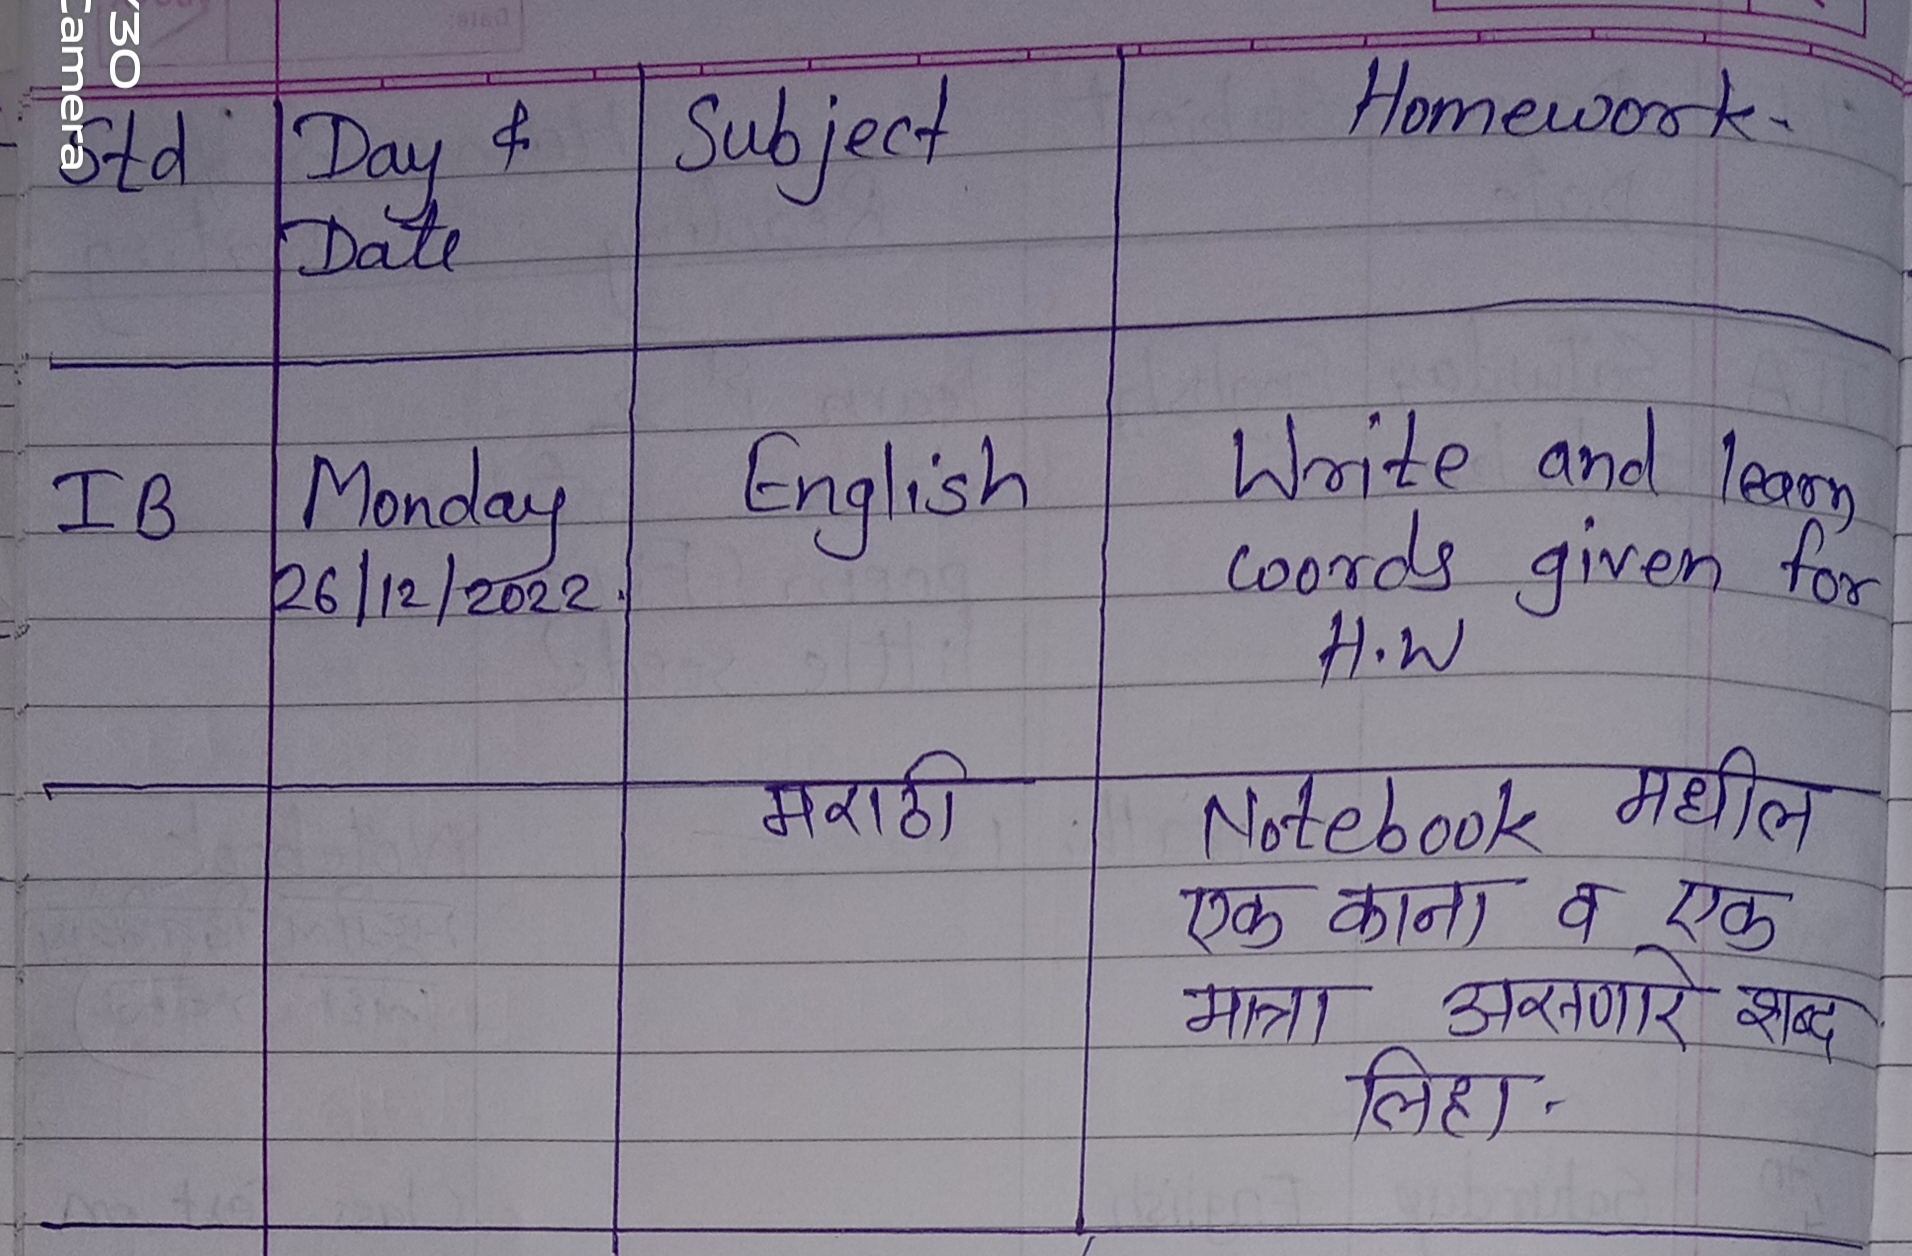 Std
Day &
Date
Subject
Homework.
I B
Monday
26/12/2022.
English
Write and learn
words given for
H.W
मराठी
Notebook मधील
एक काना व एक
मात्रा असणारे शब्द
लिहा.
/30
Camera